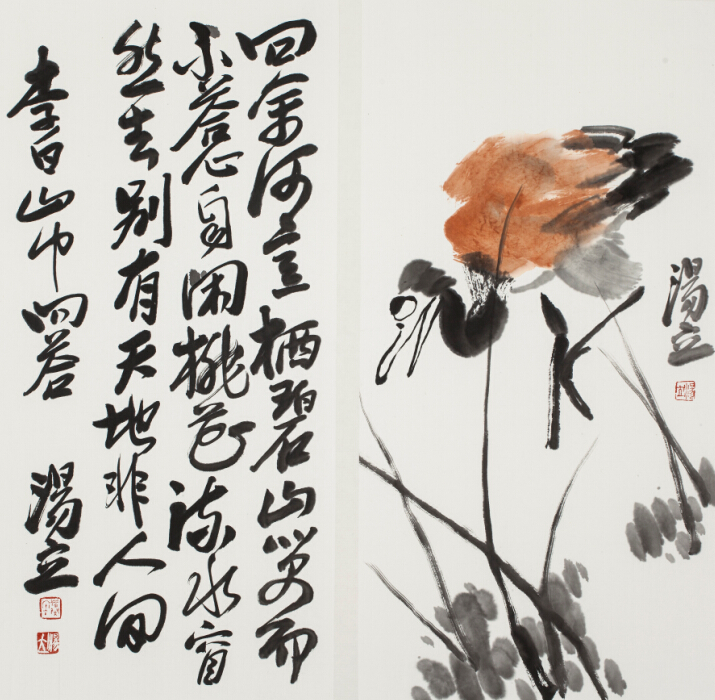 问余何意栖碧山笑而
不荅心自闲桃花流水窅
然去别有天地非人间
李白山中问荅
湯立
湯立